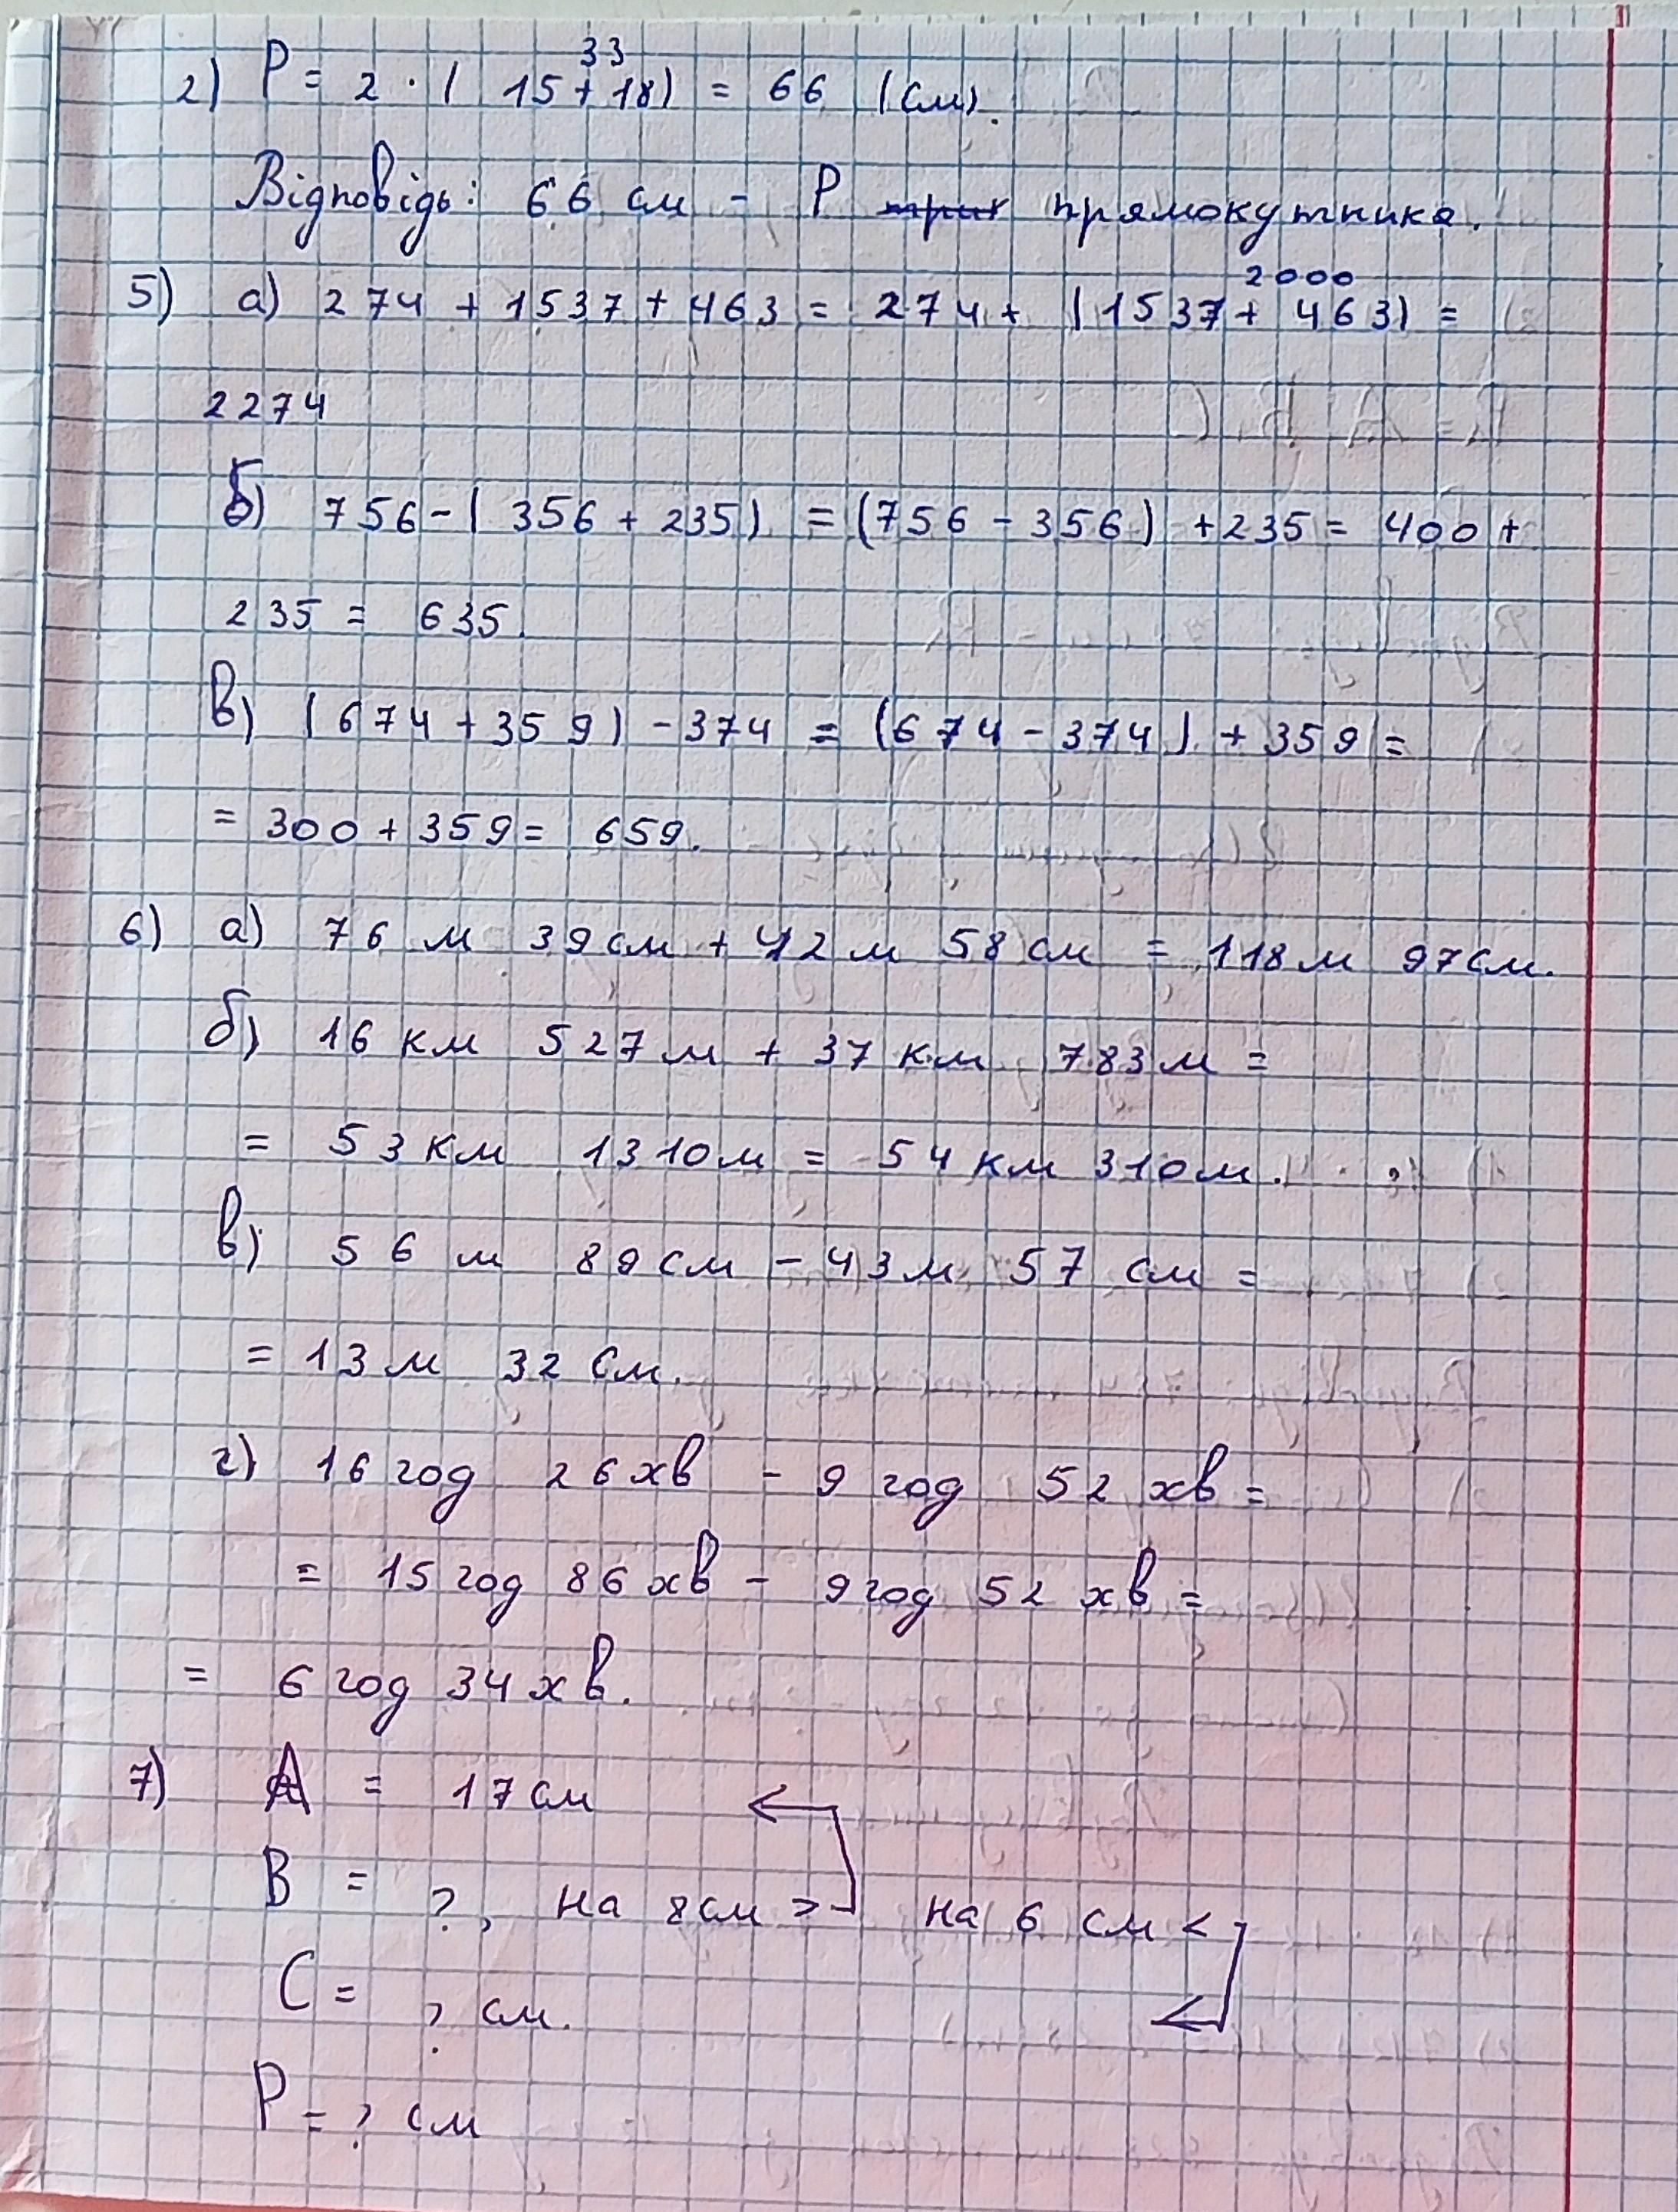 33
2) P = 2 · ( 15 + 18) = 66 (см).
Відповідь: 66 см - P прямокутника.
2000
5) а) 274 + 1537 + 463 = 274 + (1537 + 463) =
2274
б) 756 - ( 356 + 235) = (756 - 356) + 235 = 400 +
235 = 635.
в) (674 + 359) - 374 = (674 - 374) + 359 =
= 300 + 359 = 659.
6) а) 76 м 39 см + 42 м 58 см = 118 м 97 см.
б) 16 км 527 м + 37 км 783 м =
= 53 км 1310 м = 54 км 310 м.
в) 56 м 89 см - 43 м 57 см =
= 13 м 32 см.
г) 16 год 26 хв - 9 год 52 хв =
= 15 год 86 хв - 9 год 52 хв =
= 6 год 34 хв.
7) A = 17 см
B = ?, на 8 см > на 6 см <
C = ? см.
P = ? см